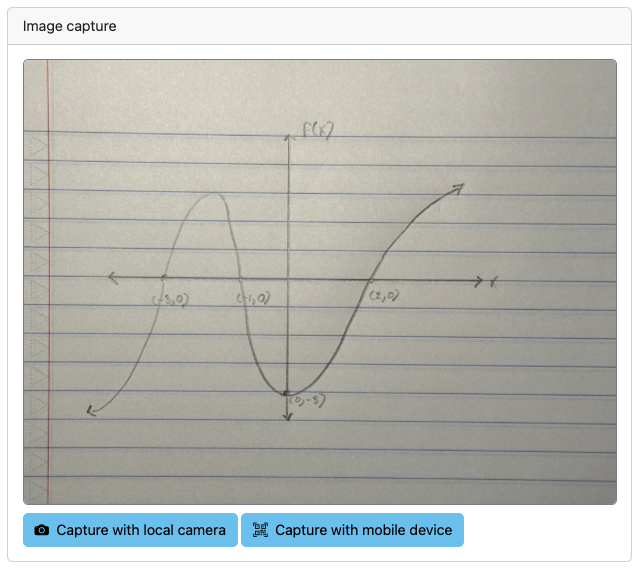 Image capture
F(x)
x
(-3,0) (-1,0) (2,0)
Capture with local camera
Capture with mobile device